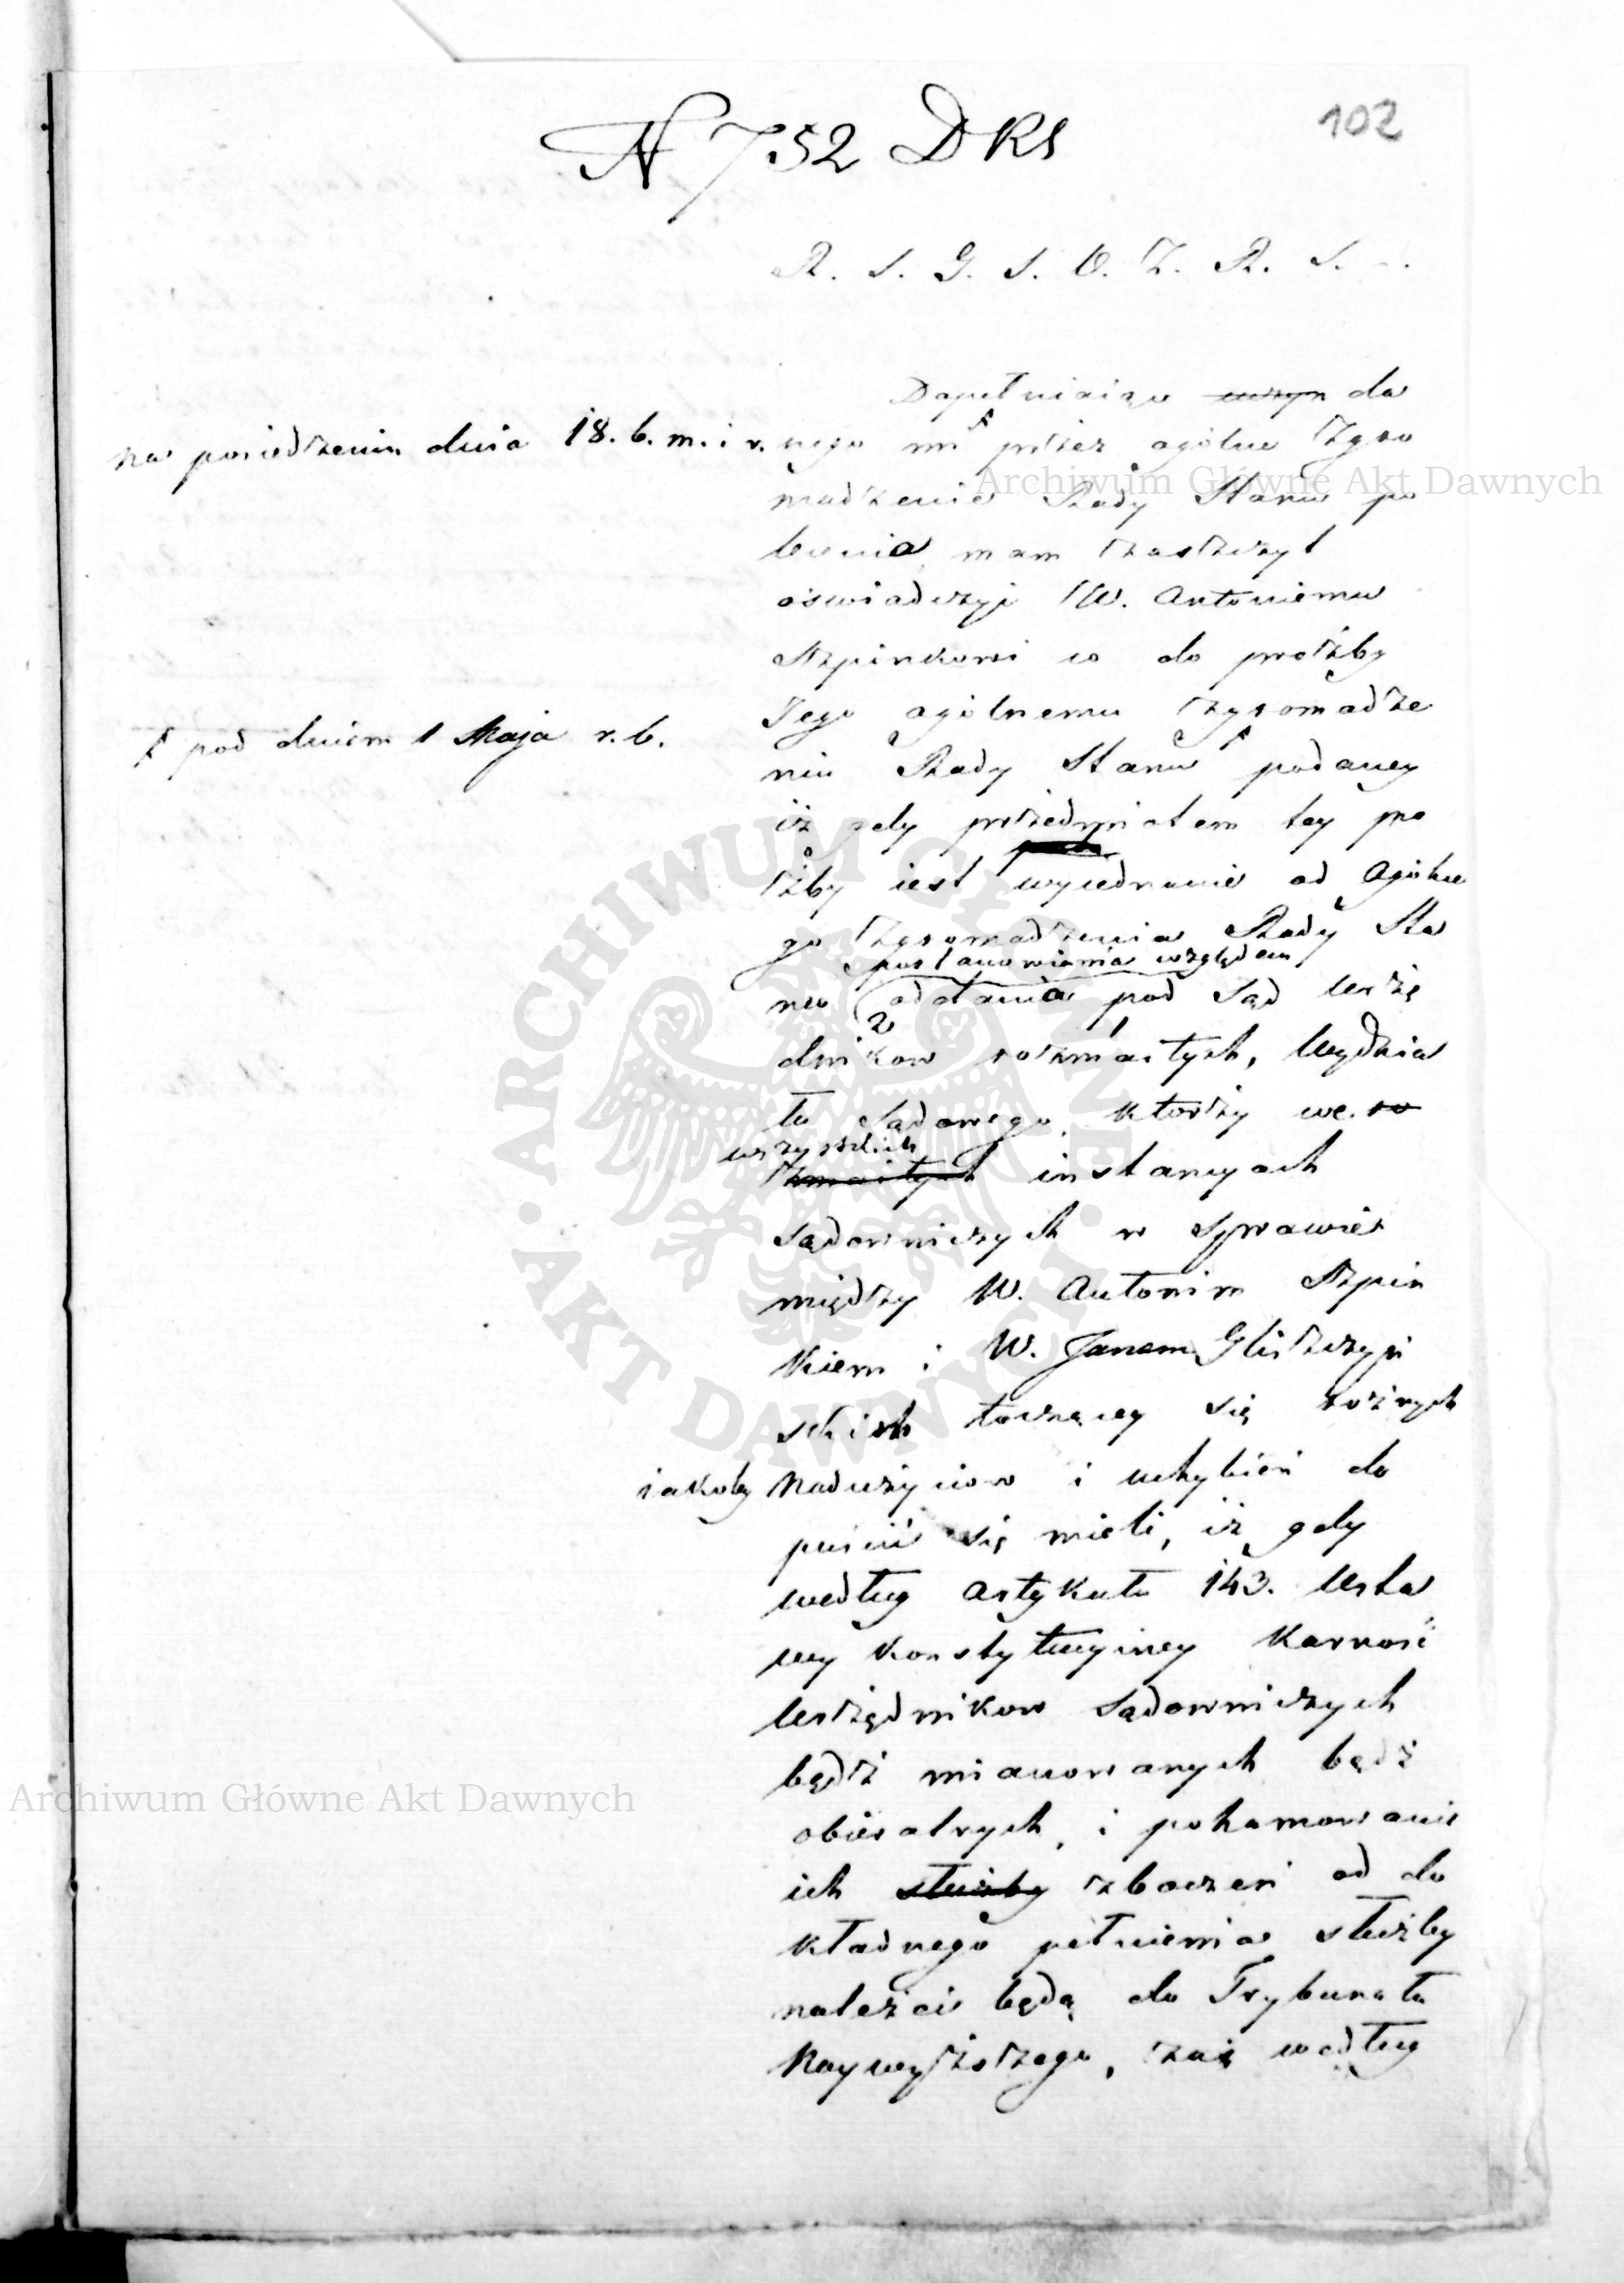 102
N 752 DRS
R. S. G. S. O. Z. R. S. -.
Dopełniaiąc uczyn da
na posiedzeniu dnia 18. b. m. i r.
nego mi przez ogólne Zgro
madzenie Rady Stanu po
lecenia, mam zaszczyt
oświadczyć W. Antoniemu
Szpinkowi co do proźby
Jego ogólnemu zgromadze
pod dniem 1 Maja r. b.
niu Rady Stanu podaney
iż gdy przedmiotem tey pro
źby iest wyiednanie od Ogólne
go Zgromadzenia Rady Sta
postanowienia względem
nu oddania pod Sąd Urzę
dników rozmaitych, Wydzia
łu Sądowego, którzy we ro
wszystkich
zmaitych instancyach
Sądowniczych w sprawie
między W. Antonim Szpin
kiem i W. Janem Gliszczyń
skim toczącey się różnych
iakoby nadużyciow i uchybień do
puścić się mieli, iż gdy
według Artykułu 143. Usta
wy Konstytucyiney Karność
Urzędnikow Sądowniczych
bądź mianowanych bądź
obieralnych, i pohamowanie
ich służby zboczeń od do
kładnego pełnienia służby
należeć będą do Trybunału
Naywyższego, zaś według
Archiwum Główne Akt Dawnych
Archiwum Główne Akt Dawnych
ARCHIWUM GŁÓWNE AKT DAWNYCH